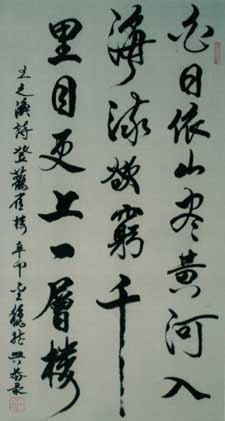 白日依山尽黄河入
海流欲窮千
里目更上一層樓
王之渙詩登鸛雀樓 辛卯